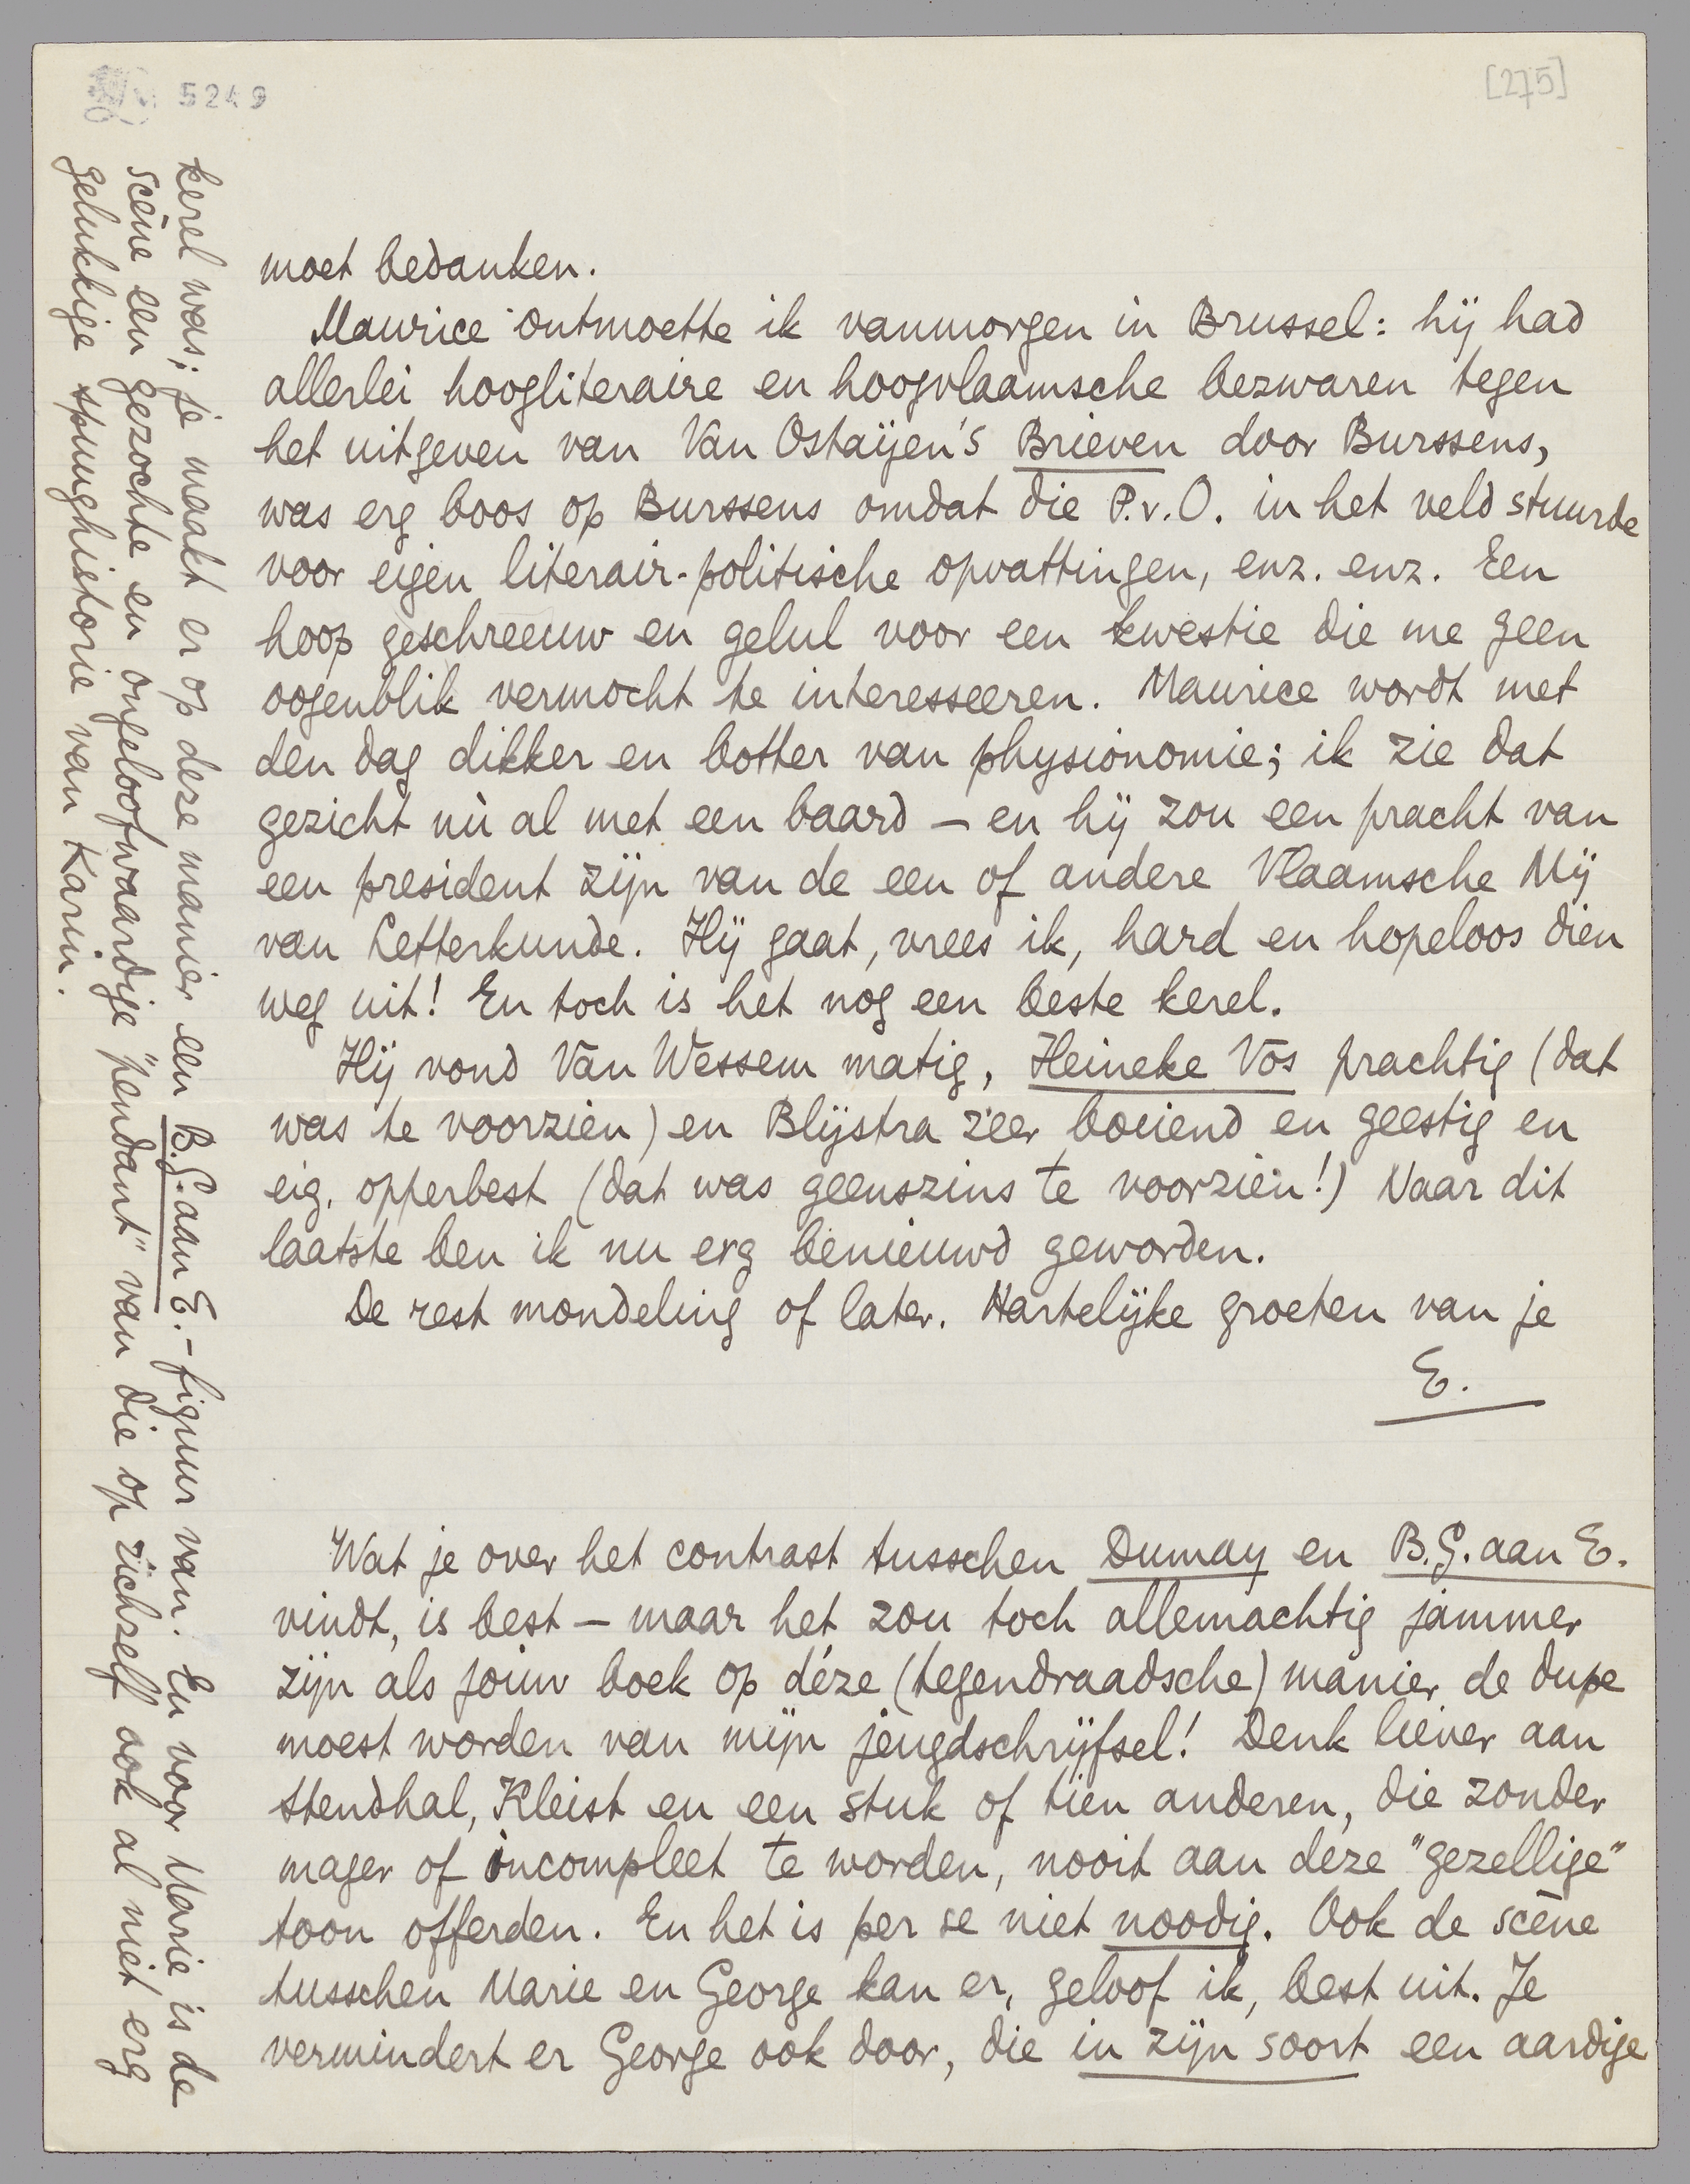 5249
[275]
moet bedanken.
Maurice ontmoette ik vanmorgen in Brussel: hij had
allerlei hoogliteraire en hoogvlaamsche bezwaren tegen
het uitgeven van Van Ostaijen's Brieven door Burssens,
was erg boos op Burssens omdat die P.v.O. in het veld stuurde
voor eigen literair-politische opvattingen, enz. enz. Een
hoop geschreeuw en gelul voor een kwestie die me geen
oogenblik vermocht te interesseeren. Maurice wordt met
den dag dikker en botter van physionomie; ik zie dat
gezicht nù al met een baard – en hij zou een pracht van
een president zijn van de een of andere Vlaamsche Mij
van Letterkunde. Hij gaat, vrees ik, hard en hopeloos dien
weg uit! En toch is het nog een beste kerel.
Hij vond Van Wessem matig, Heineke Vos prachtig (dat
was te voorzien) en Blijstra zéér boeiend en geestig en
eig. opperbest (dat was geenszins te voorzien!) Naar dit
laatste ben ik nu erg benieuwd geworden.
De rest mondeling of later. Hartelijke groeten van je
E.
Wat je over het contrast tusschen Dumay en B.G. aan E.
vindt, is best – maar het zou toch allemachtig jammer
zijn als jouw boek op déze (tegendraadsche) manier de dupe
moest worden van mijn jeugdschrijfsel! Denk liever aan
Stendhal, Kleist en een stuk of tien anderen, die zonder
mager of incompleet te worden, nooit aan deze "gezellige"
toon offerden. En het is per se niet noodig. Ook de scène
tusschen Marie en George kan er, geloof ik, best uit. Je
vermindert er George ook door, die in zijn soort een aardige
kerel was; je maakt er op deze manier een B.G. aan E.-figuur van. En voor Marie is de
scène een gezochte en ongeloofwaardige "pendant" van die op zichzelf ook al niet erg
gelukkige spuughistorie van Karin.